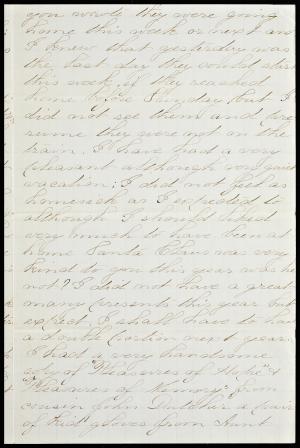 you wrote they were going
home this week or next and
I knew that yesterday was
the last day they could start
this week if they reached
home before Sunday but I
did not see them and pre
sume they were not on the
train. I have had a very
pleasant although very quiet
vacation; I did not feel as
homesick as I expected to
although I should liked
very much to have been at
home Santa Claus was very
kind to you this year was he
not? I did not have a great
many presents this year but
expect I shall have to have
a double portion next year.
I had a very handsome
copy of "Pleasures of Hope" &
"Pleasures of Memory" from
cousin John a pair
of Kid gloves from Aunt